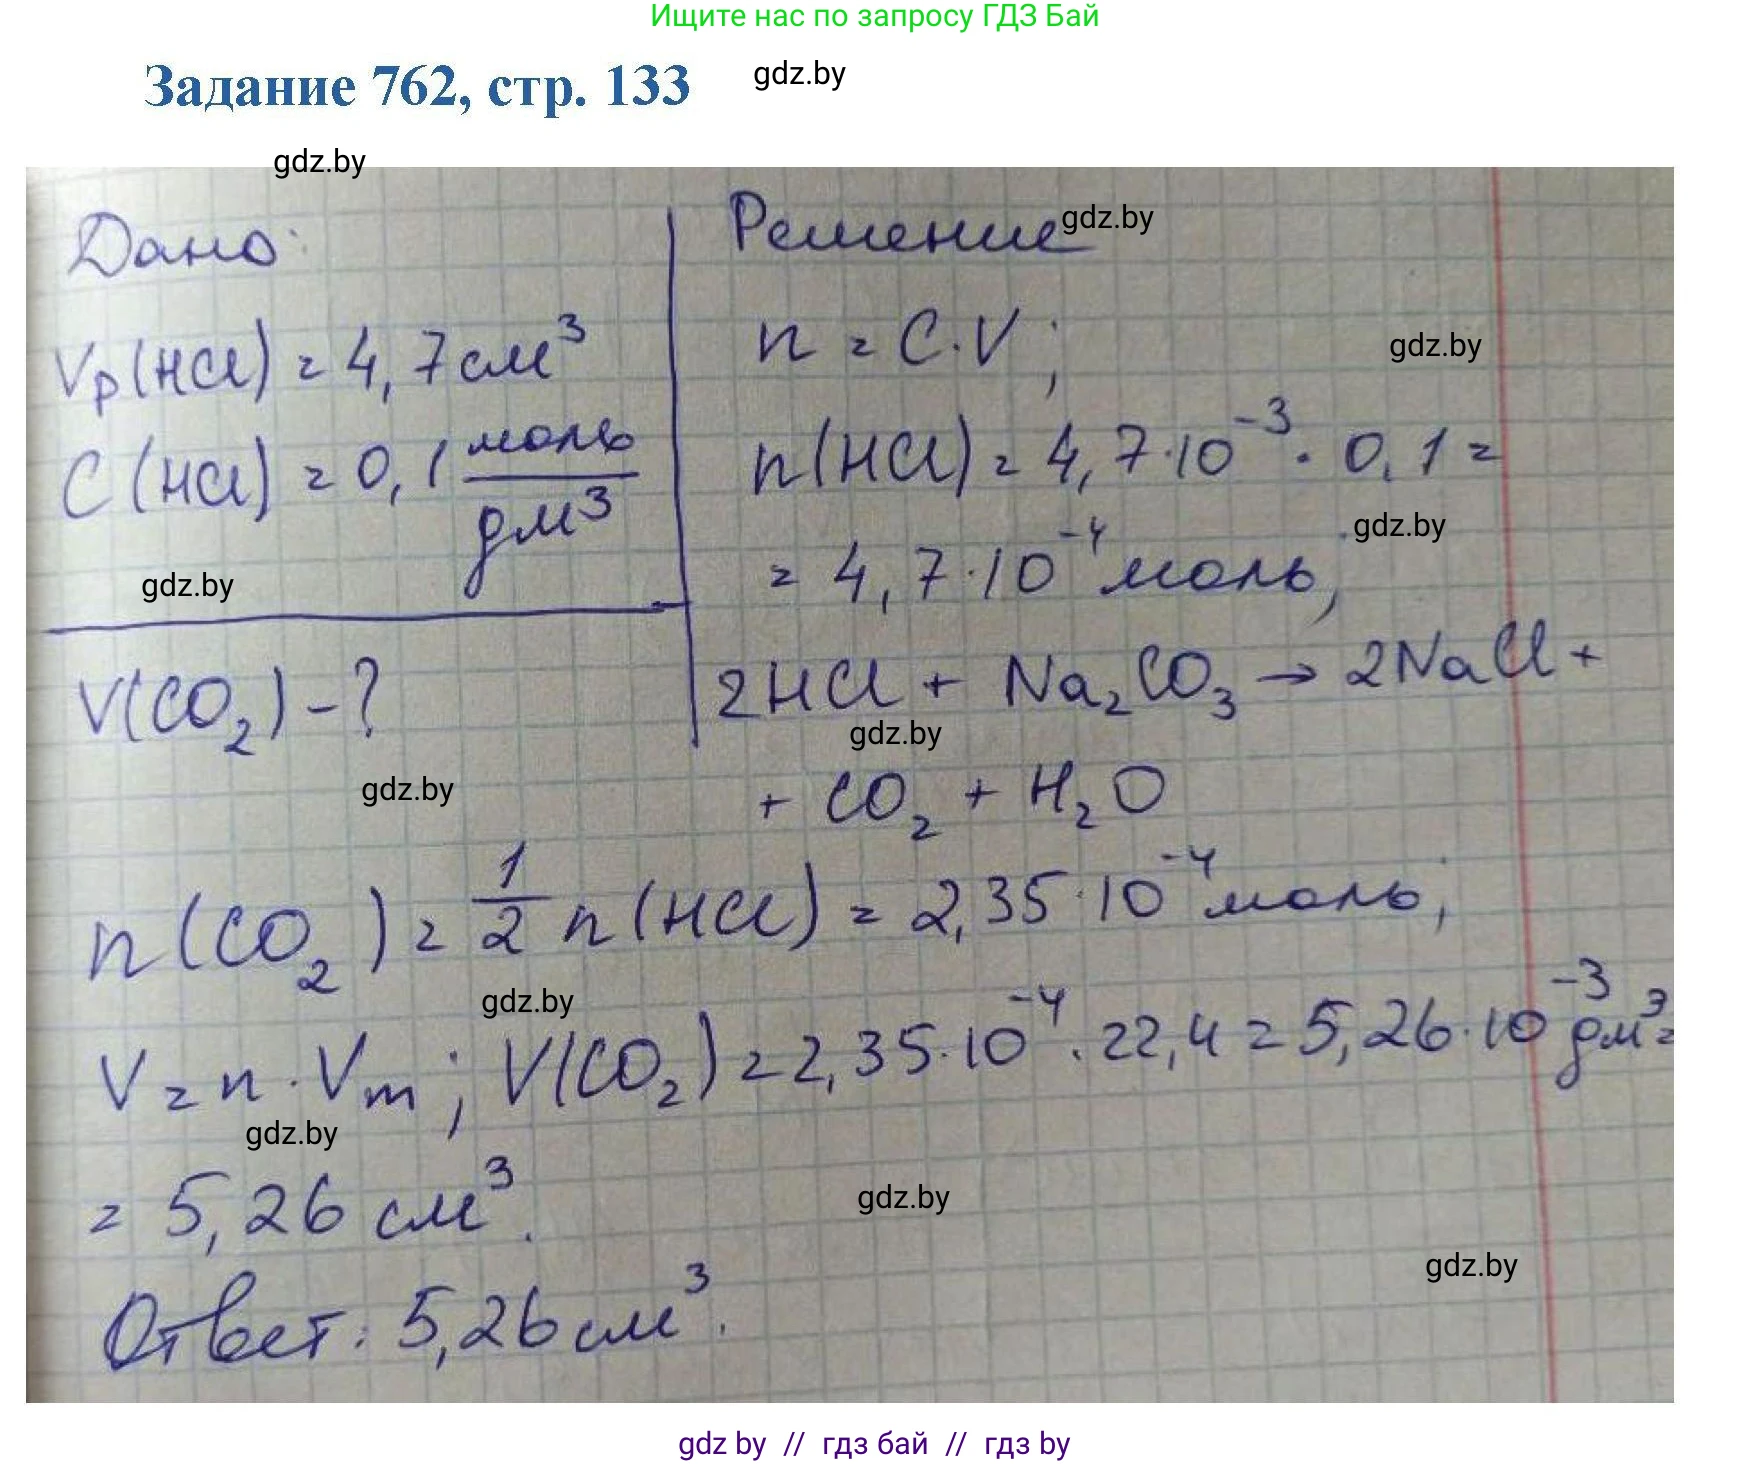 Ищите нас по запросу ГДЗ Бай
Задание 762, стр. 133
gdz.by
gdz.by
Дано:
Vр(HCl) = 4,7 см³
C(HCl) = 0,1 моль/дм³
gdz.by
V(CO₂) - ?
gdz.by
Решение
gdz.by
n = C·V;
gdz.by
n(HCl) = 4,7·10⁻³ · 0,1 =
gdz.by
= 4,7·10⁻⁴ моль;
2HCl + Na₂CO₃ → 2NaCl +
gdz.by
+ CO₂ + H₂O
n(CO₂) = 1/2 n(HCl) = 2,35·10⁻⁴ моль;
gdz.by
V = n·Vm; V(CO₂) = 2,35·10⁻⁴ · 22,4 = 5,26·10⁻³ дм³ =
gdz.by
= 5,26 см³.
gdz.by
gdz.by
Ответ: 5,26 см³.
gdz by // гдз бай // гдз by